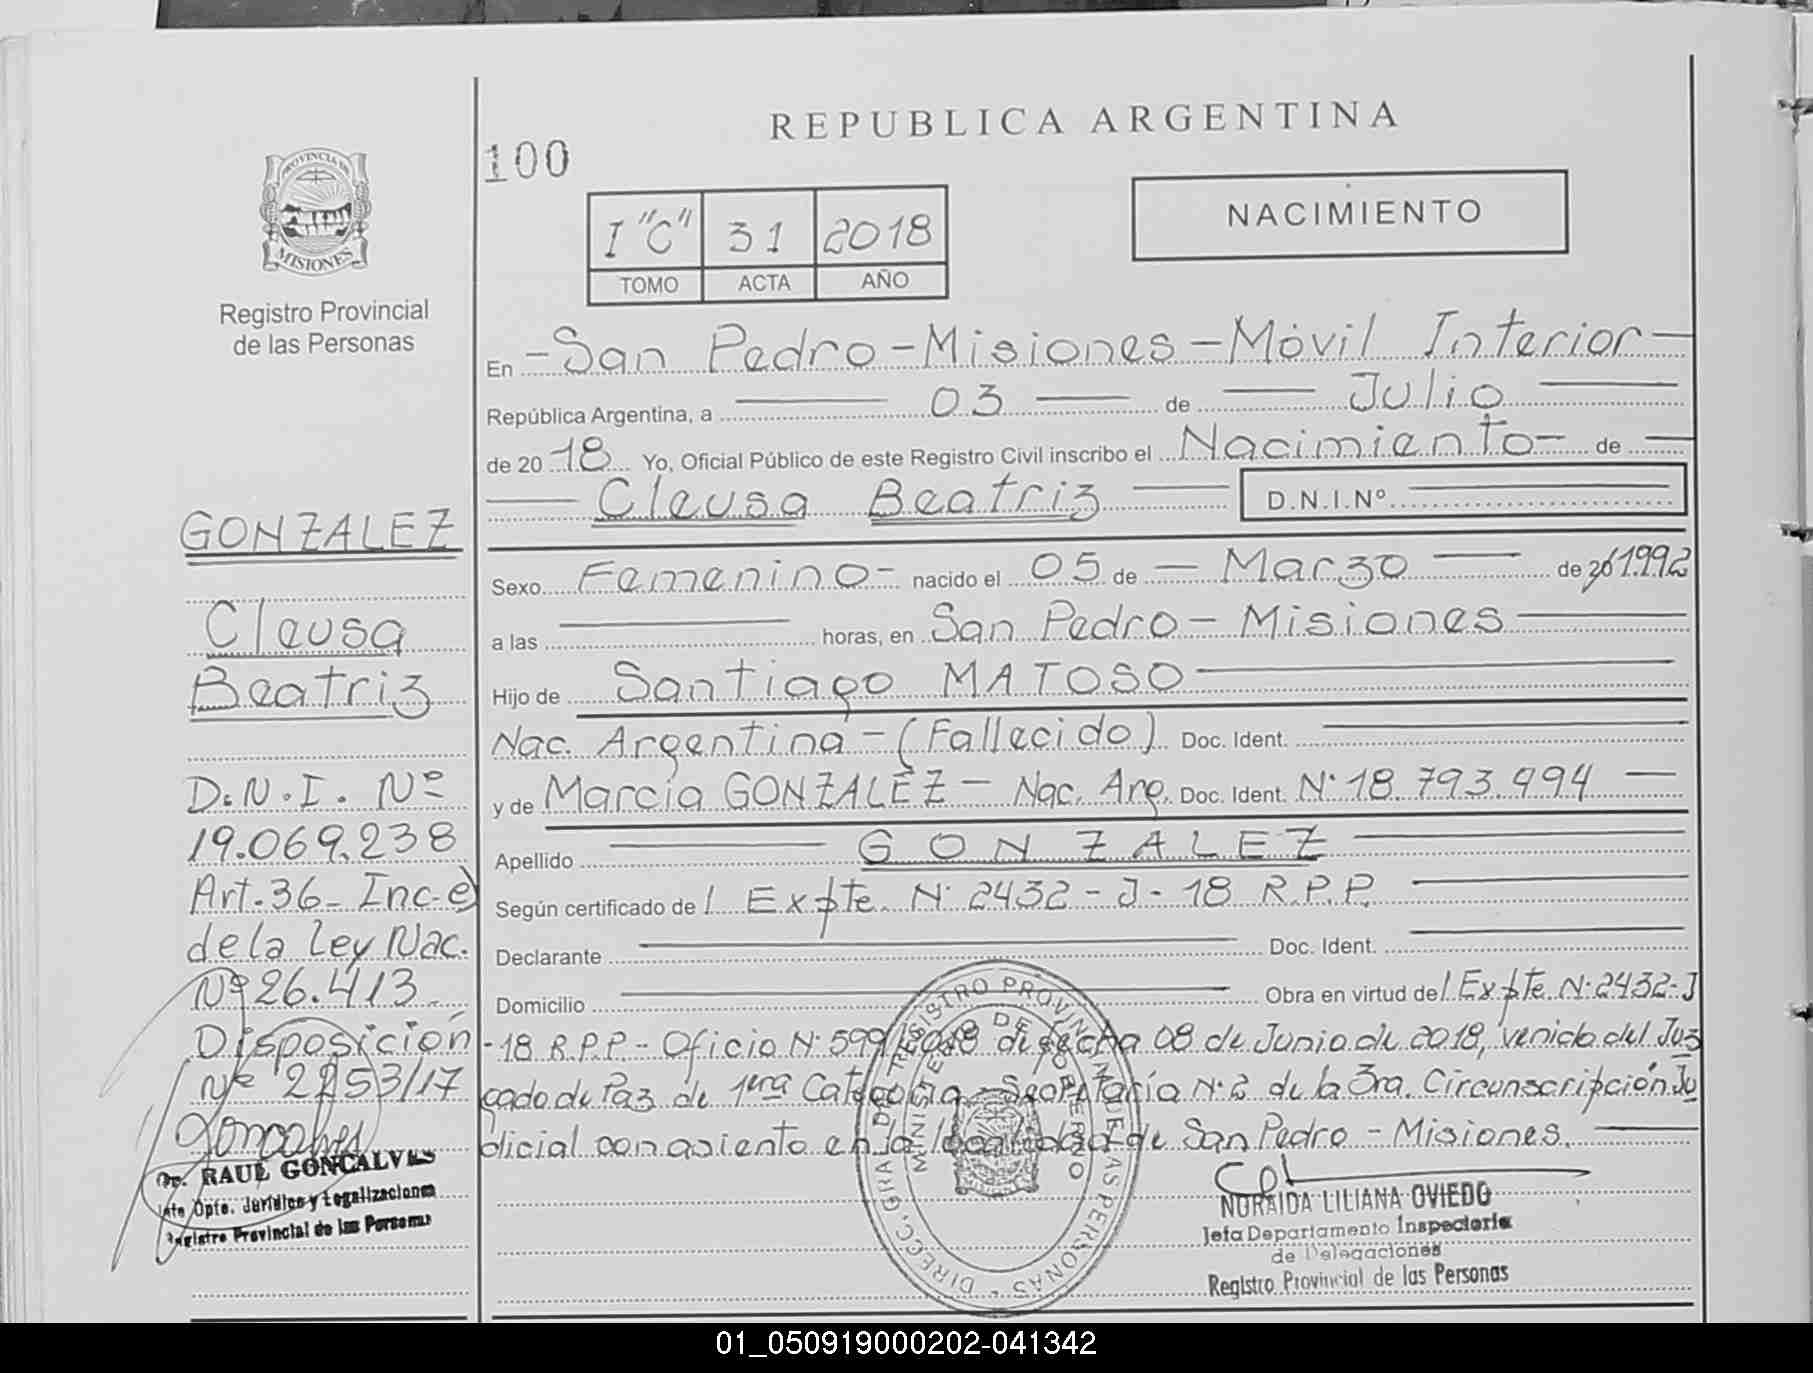 REPUBLICA ARGENTINA
100
PROVINCIA DE
MISIONES
Registro Provincial
de las Personas
I "C" 31 2018
TOMO ACTA AÑO
NACIMIENTO
En - San Pedro - Misiones - Móvil Interior -
República Argentina, a 03 de Julio
de 2018 Yo, Oficial Público de este Registro Civil inscribo el Nacimiento - de
Cleusa Beatriz D.N.I.Nº
Sexo Femenino - nacido el 05 de - Marzo de 20 1992
a las horas, en San Pedro - Misiones
Hijo de Santiago MATOSO
Nac. Argentina - (Fallecido) Doc. Ident.
y de Marcia GONZALEZ - Nac. Arg. Doc. Ident. Nº 18.793.994
Apellido GONZALEZ
Según certificado de / Expte. Nº 2432 - J - 18 R.P.P.
Declarante Doc. Ident.
Domicilio Obra en virtud de / Expte. Nº 2432 - J
- 18 R.P.P. - Oficio Nº 599/2018 de fecha 08 de Junio de 2018, venido del Juz
gado de Paz de 1era Categoría - Secretaría Nº 2 de la 3ra. Circunscripción Ju
dicial con asiento en la localidad de San Pedro - Misiones.
GONZALEZ
Cleusa
Beatriz
D.N.I. Nº
19.069.238
Art. 36 - Inc. e)
de la Ley Nac.
Nº 26.413
Disposición
Nº 2253/17
Goncalves
Dr. RAUL GONCALVES
Jefe Dpto. Jurídico y Legalizaciones
Registro Provincial de las Personas
DIRECC. GRAL. DEL REGISTRO PROVINCIAL DE LAS PERSONAS
MINISTERIO DE GOBIERNO
NORAIDA LILIANA OVIEDO
Jefa Departamento Inspectoría
de Delegaciones
Registro Provincial de las Personas
01_050919000202-041342